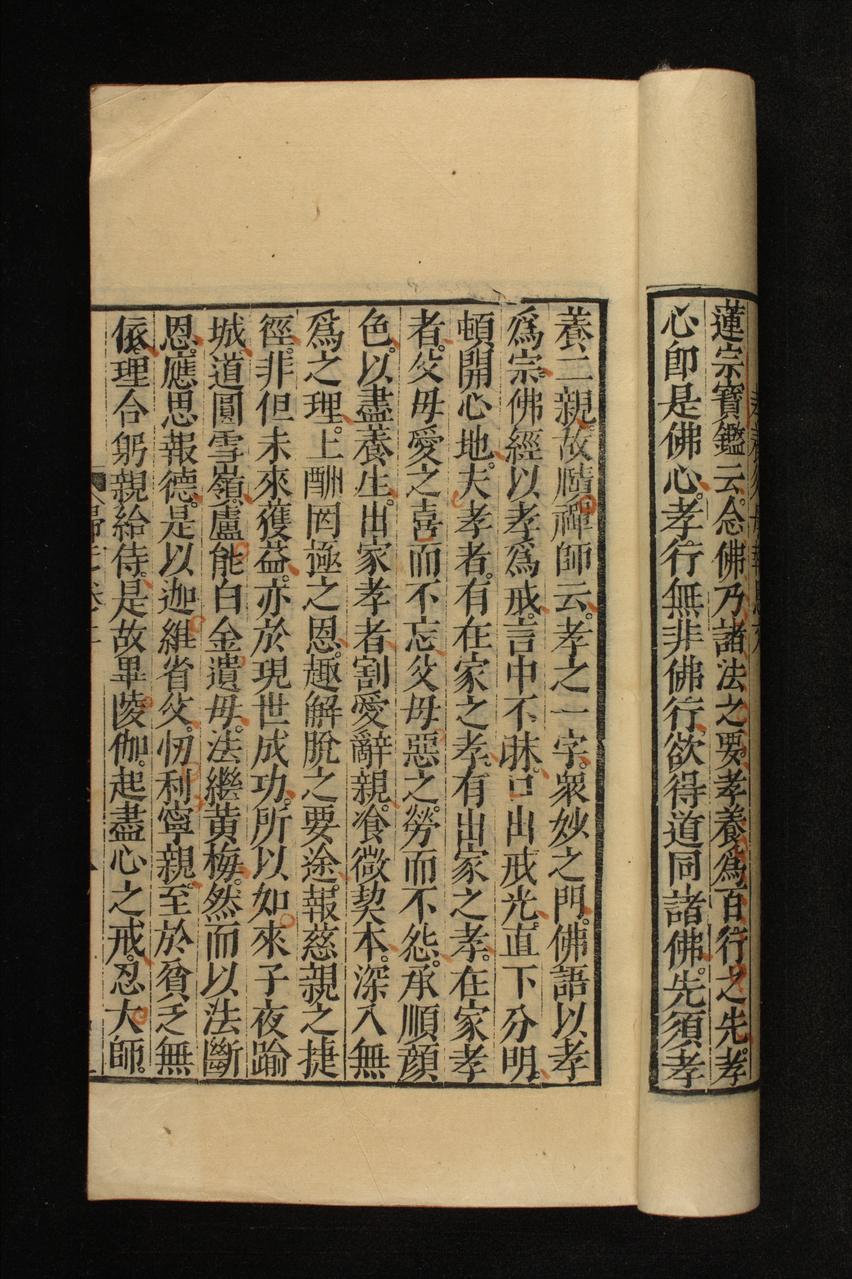 蓮宗寶鑑云念佛乃諸法之要孝養爲百行之先孝
心卽是佛心孝行無非佛行欲得道同諸佛先須孝
養二親故賾禪師云孝之一字衆妙之門佛語以孝
爲宗佛經以孝爲戒言中不昧口出戒光直下分明
頓開心地夫孝者有在家之孝有出家之孝在家孝
者父母愛之喜而不忘父母惡之勞而不怨承順顔
色以盡養生出家孝者割愛辭親飡微契本深入無
爲之理上酬罔極之恩趣解脫之要途報慈親之捷
徑非但未來獲益亦於現世成功所以如來子夜踰
城道圓雪嶺盧能白金遺母法繼黄梅然而以法斷
恩應思報德是以迦維省父忉利寧親至於貧乏無
依理合躬親給侍是故畢陵伽起盡心之戒忍大師